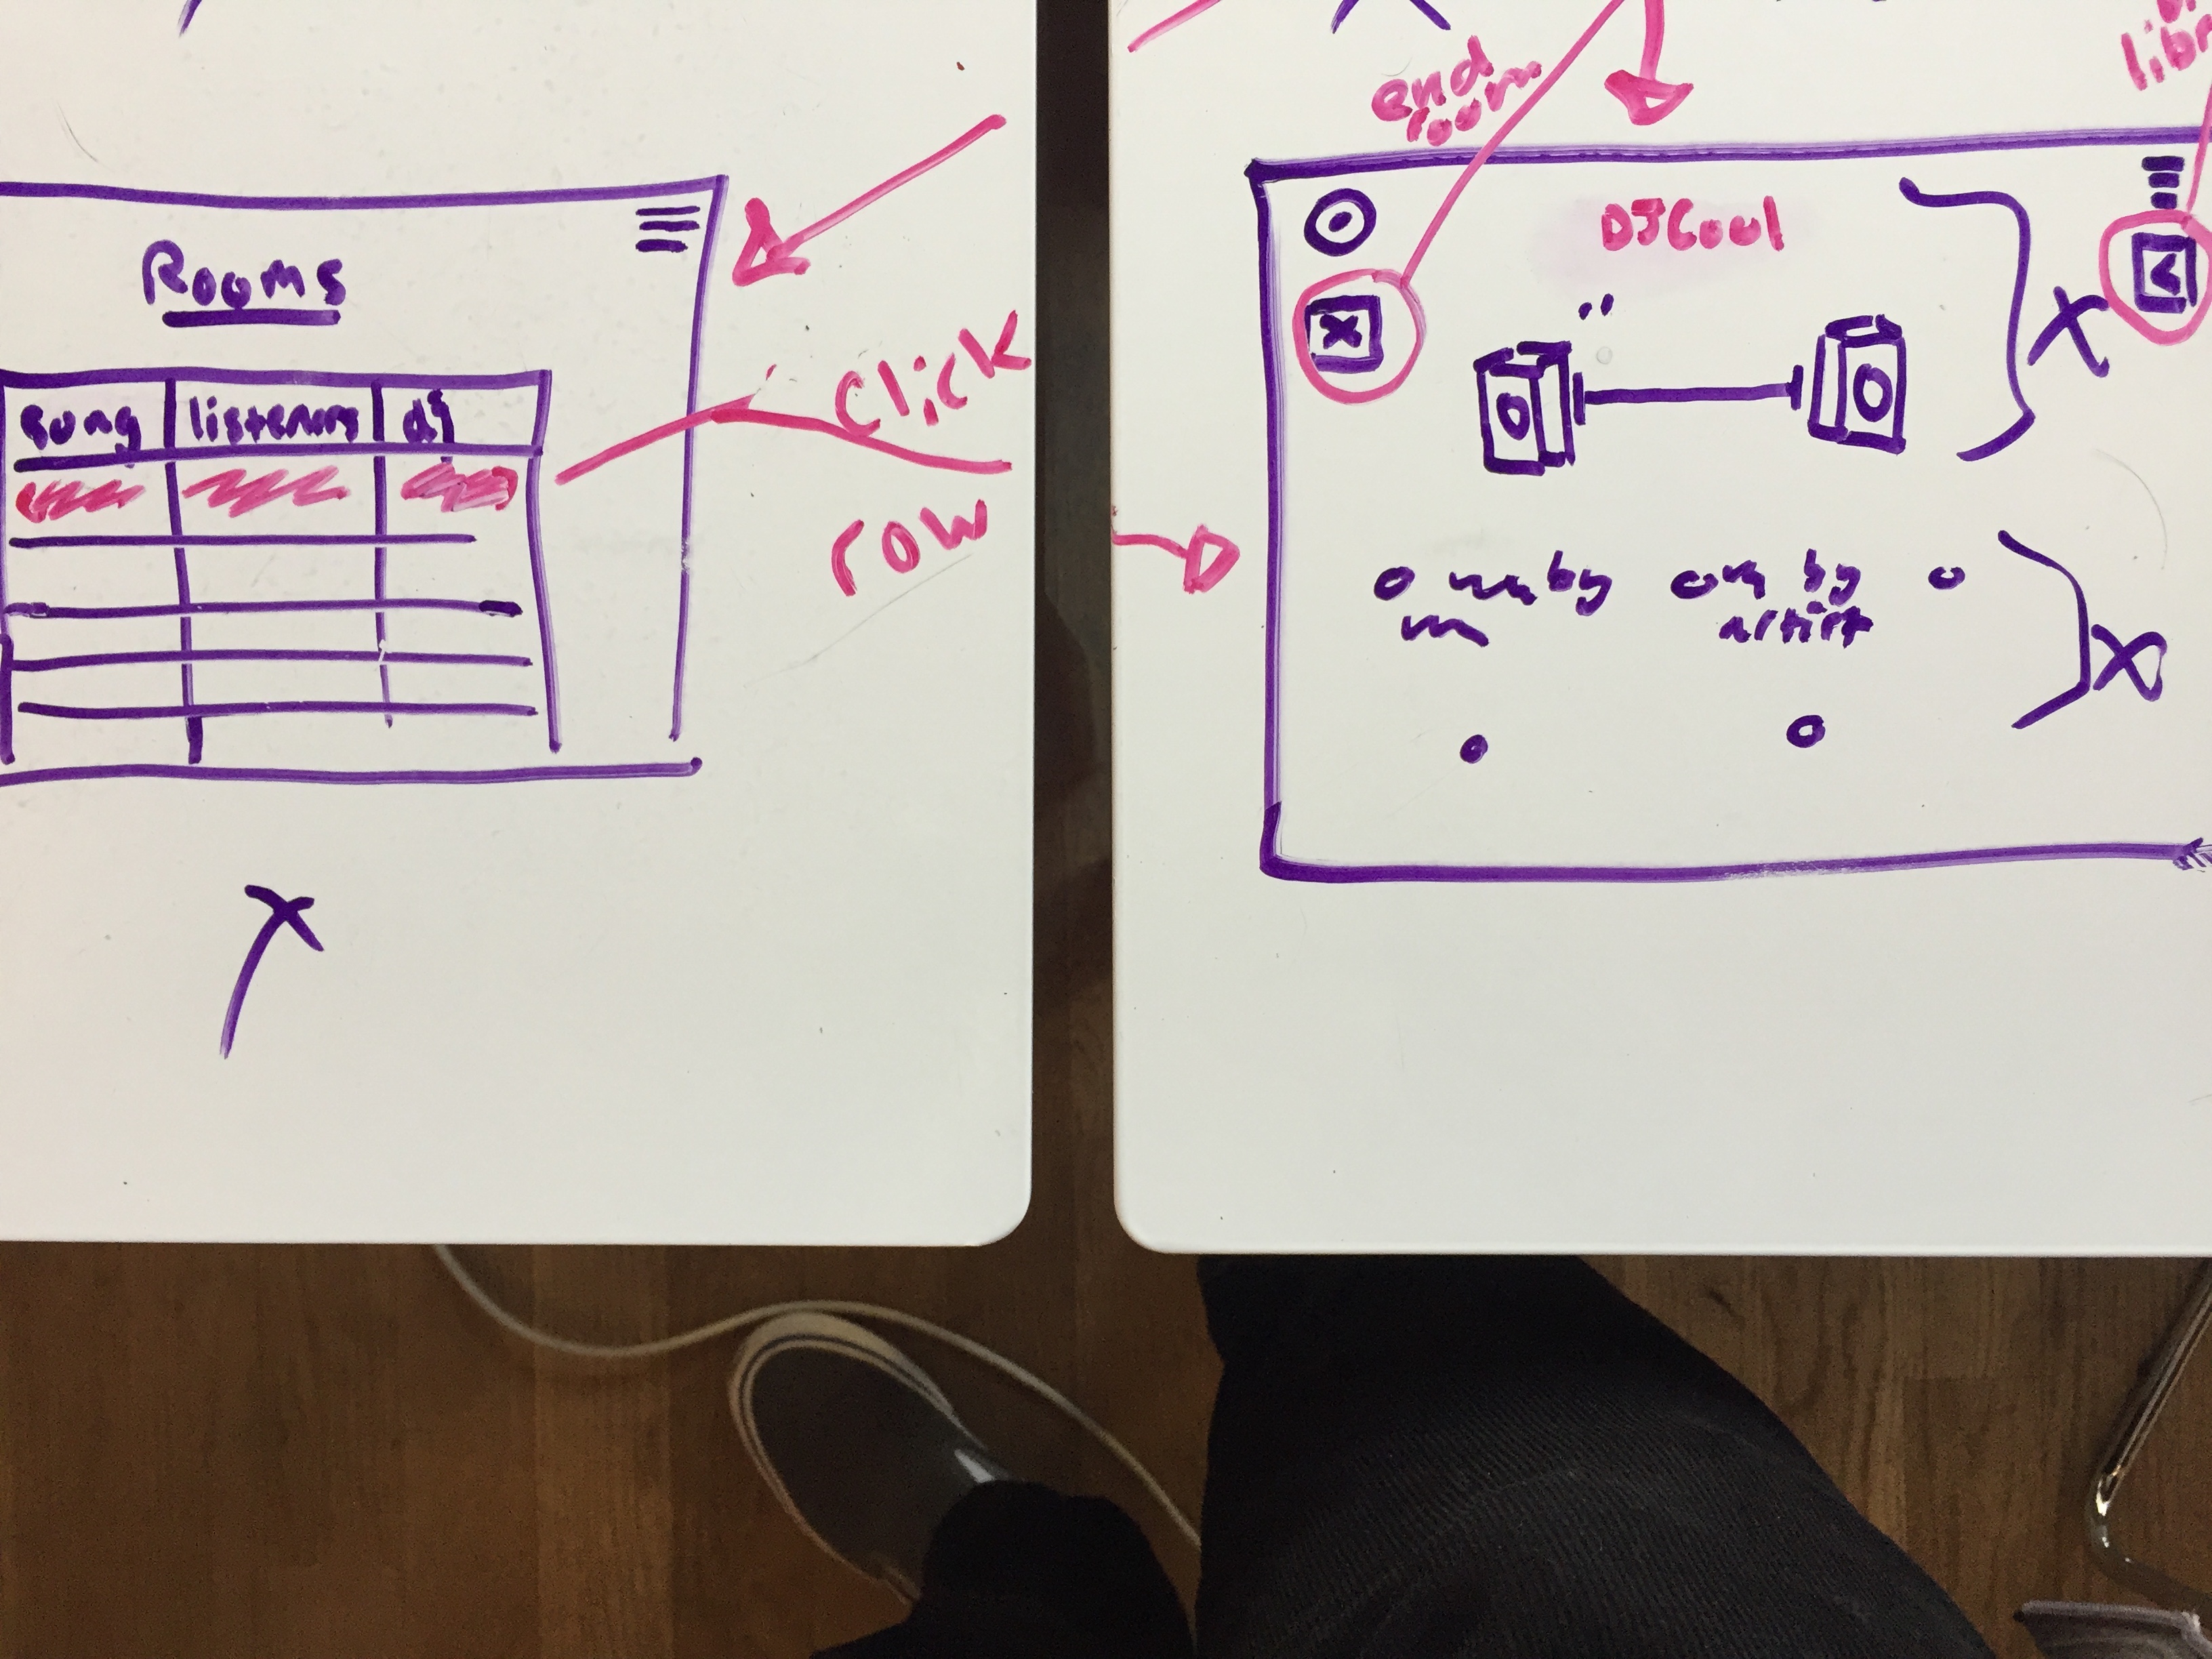 Rooms
song listeners dj
click
row
end
room
libr
DJ Cool
X
by by
artist
X
X